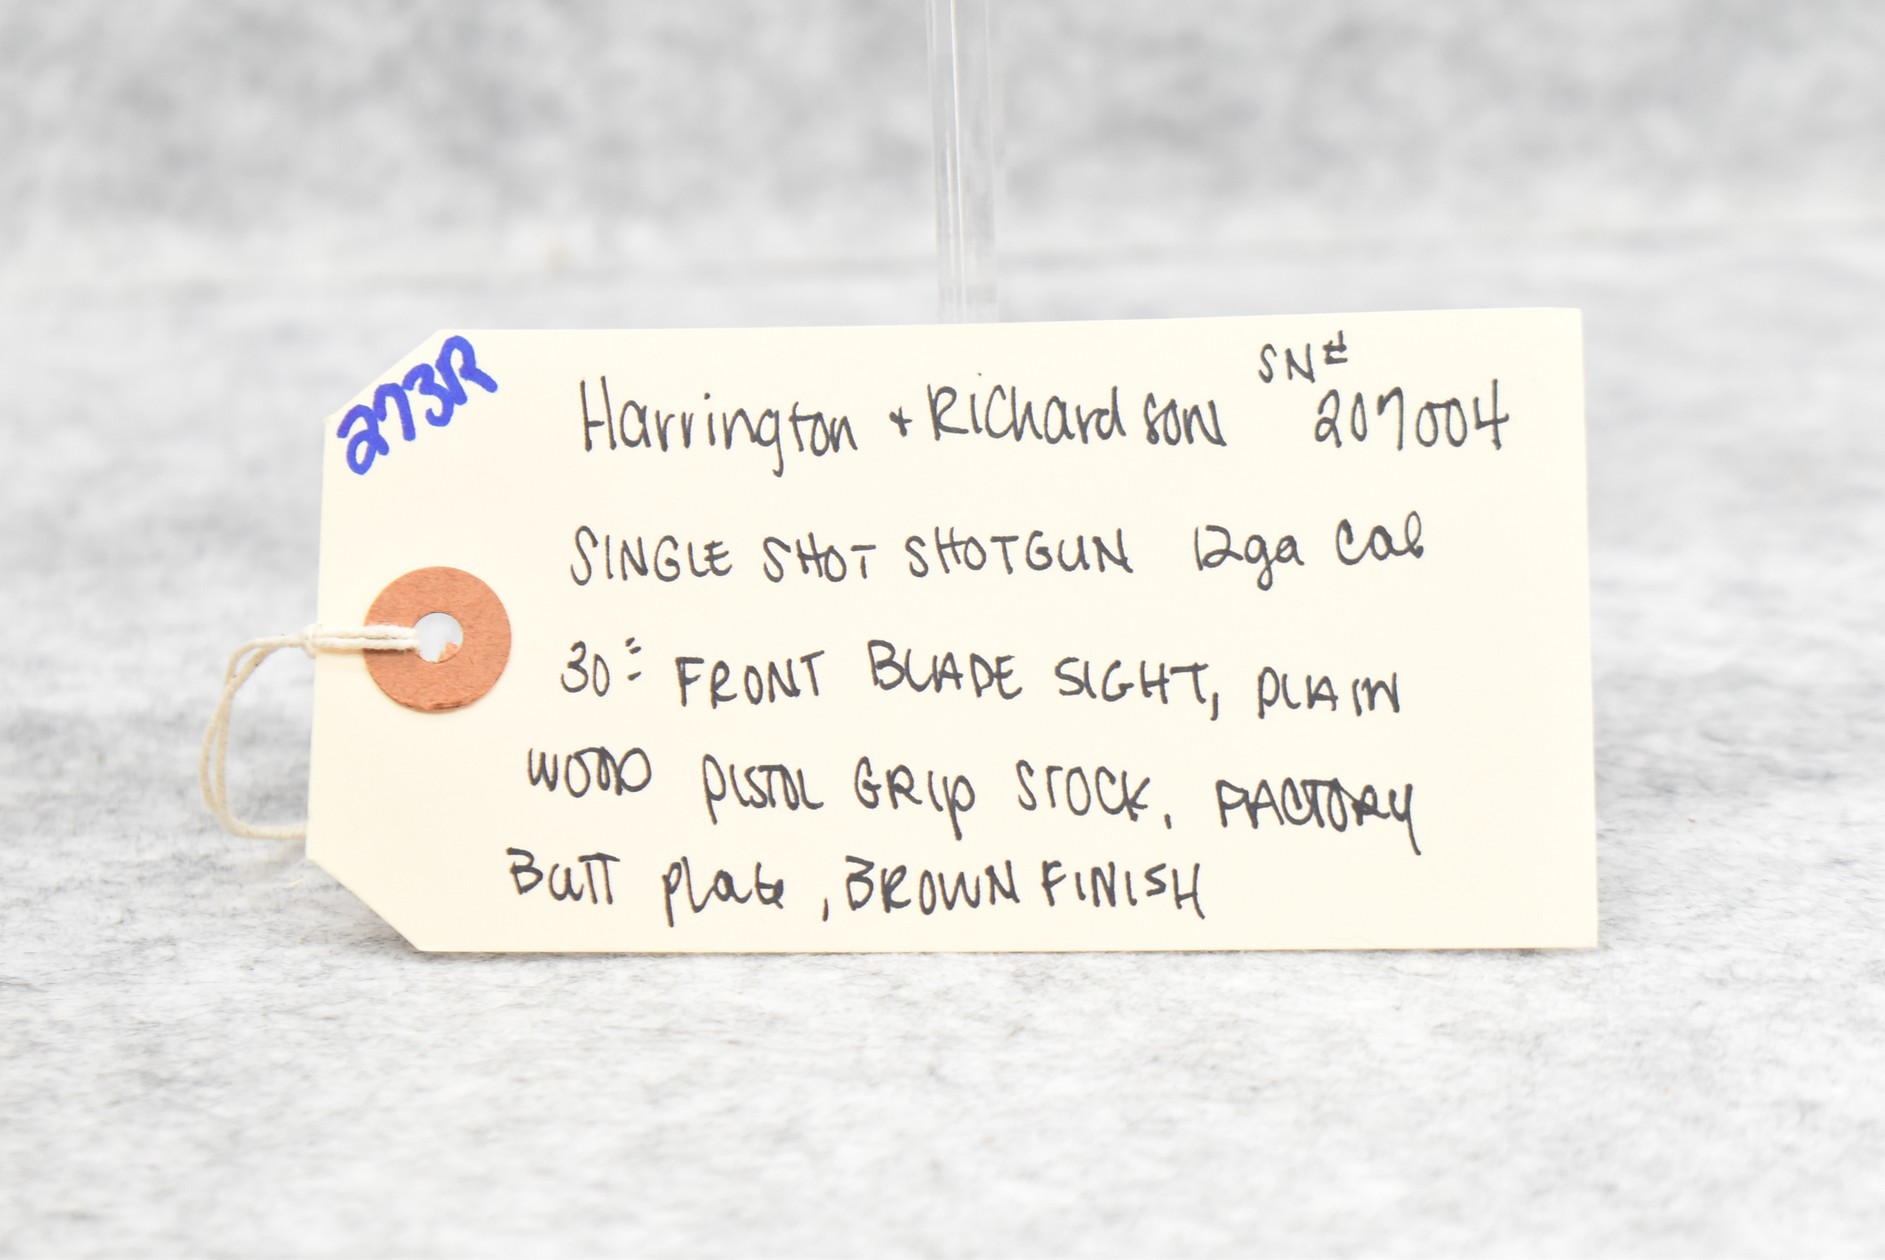 273R
Harrington + Richardson SN# 207004
SINGLE SHOT SHOTGUN 12ga Cal
30" FRONT BLADE SIGHT, PLAIN
WOOD PISTOL GRIP STOCK, FACTORY
BUTT plate, BROWN FINISH